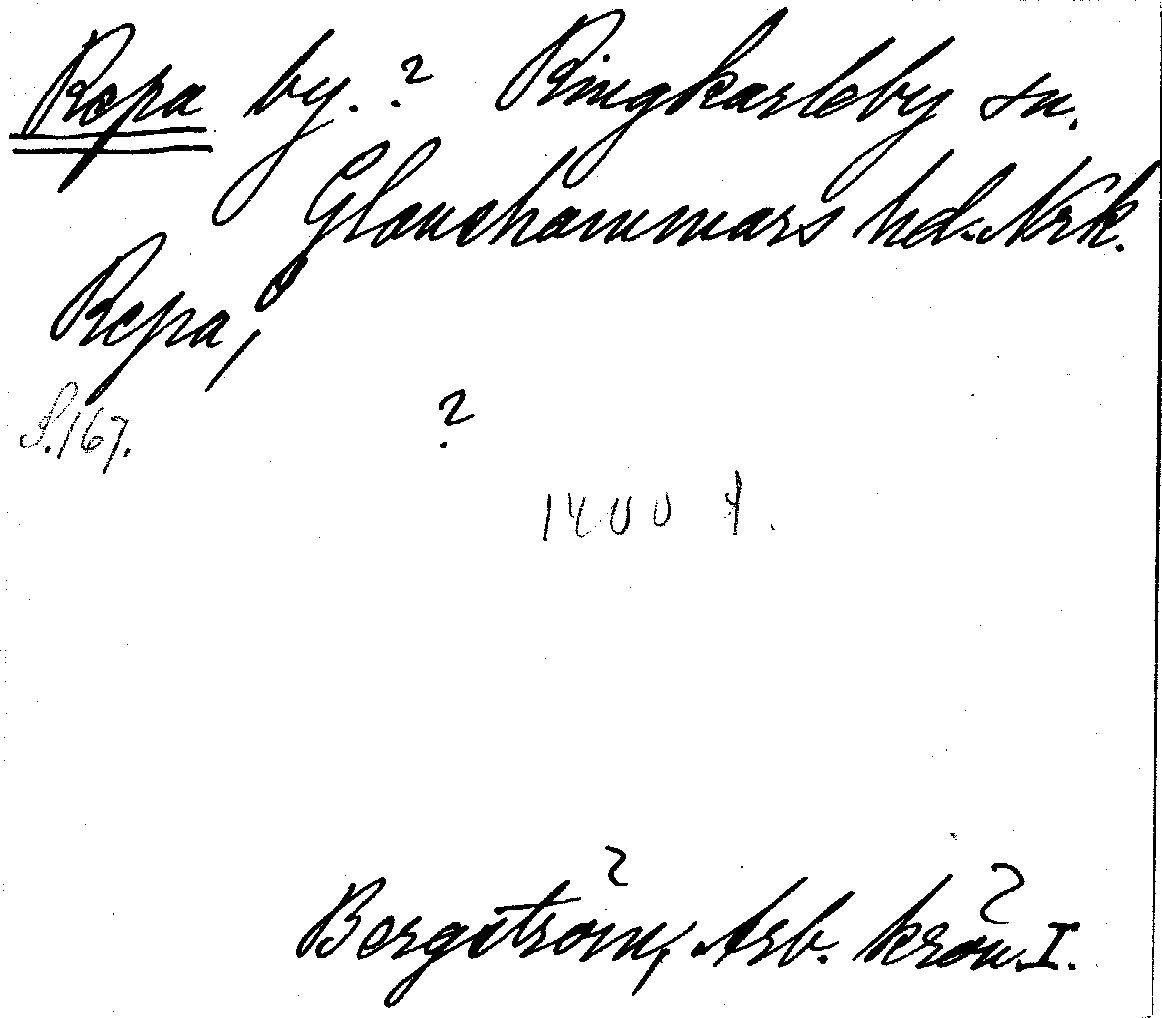 Repa by. ? Ringkarleby sn.
Glanshammars hd. Nrk.
Repa,
S. 167.
?
1400 t.
Bergström, Arb. krön. I.